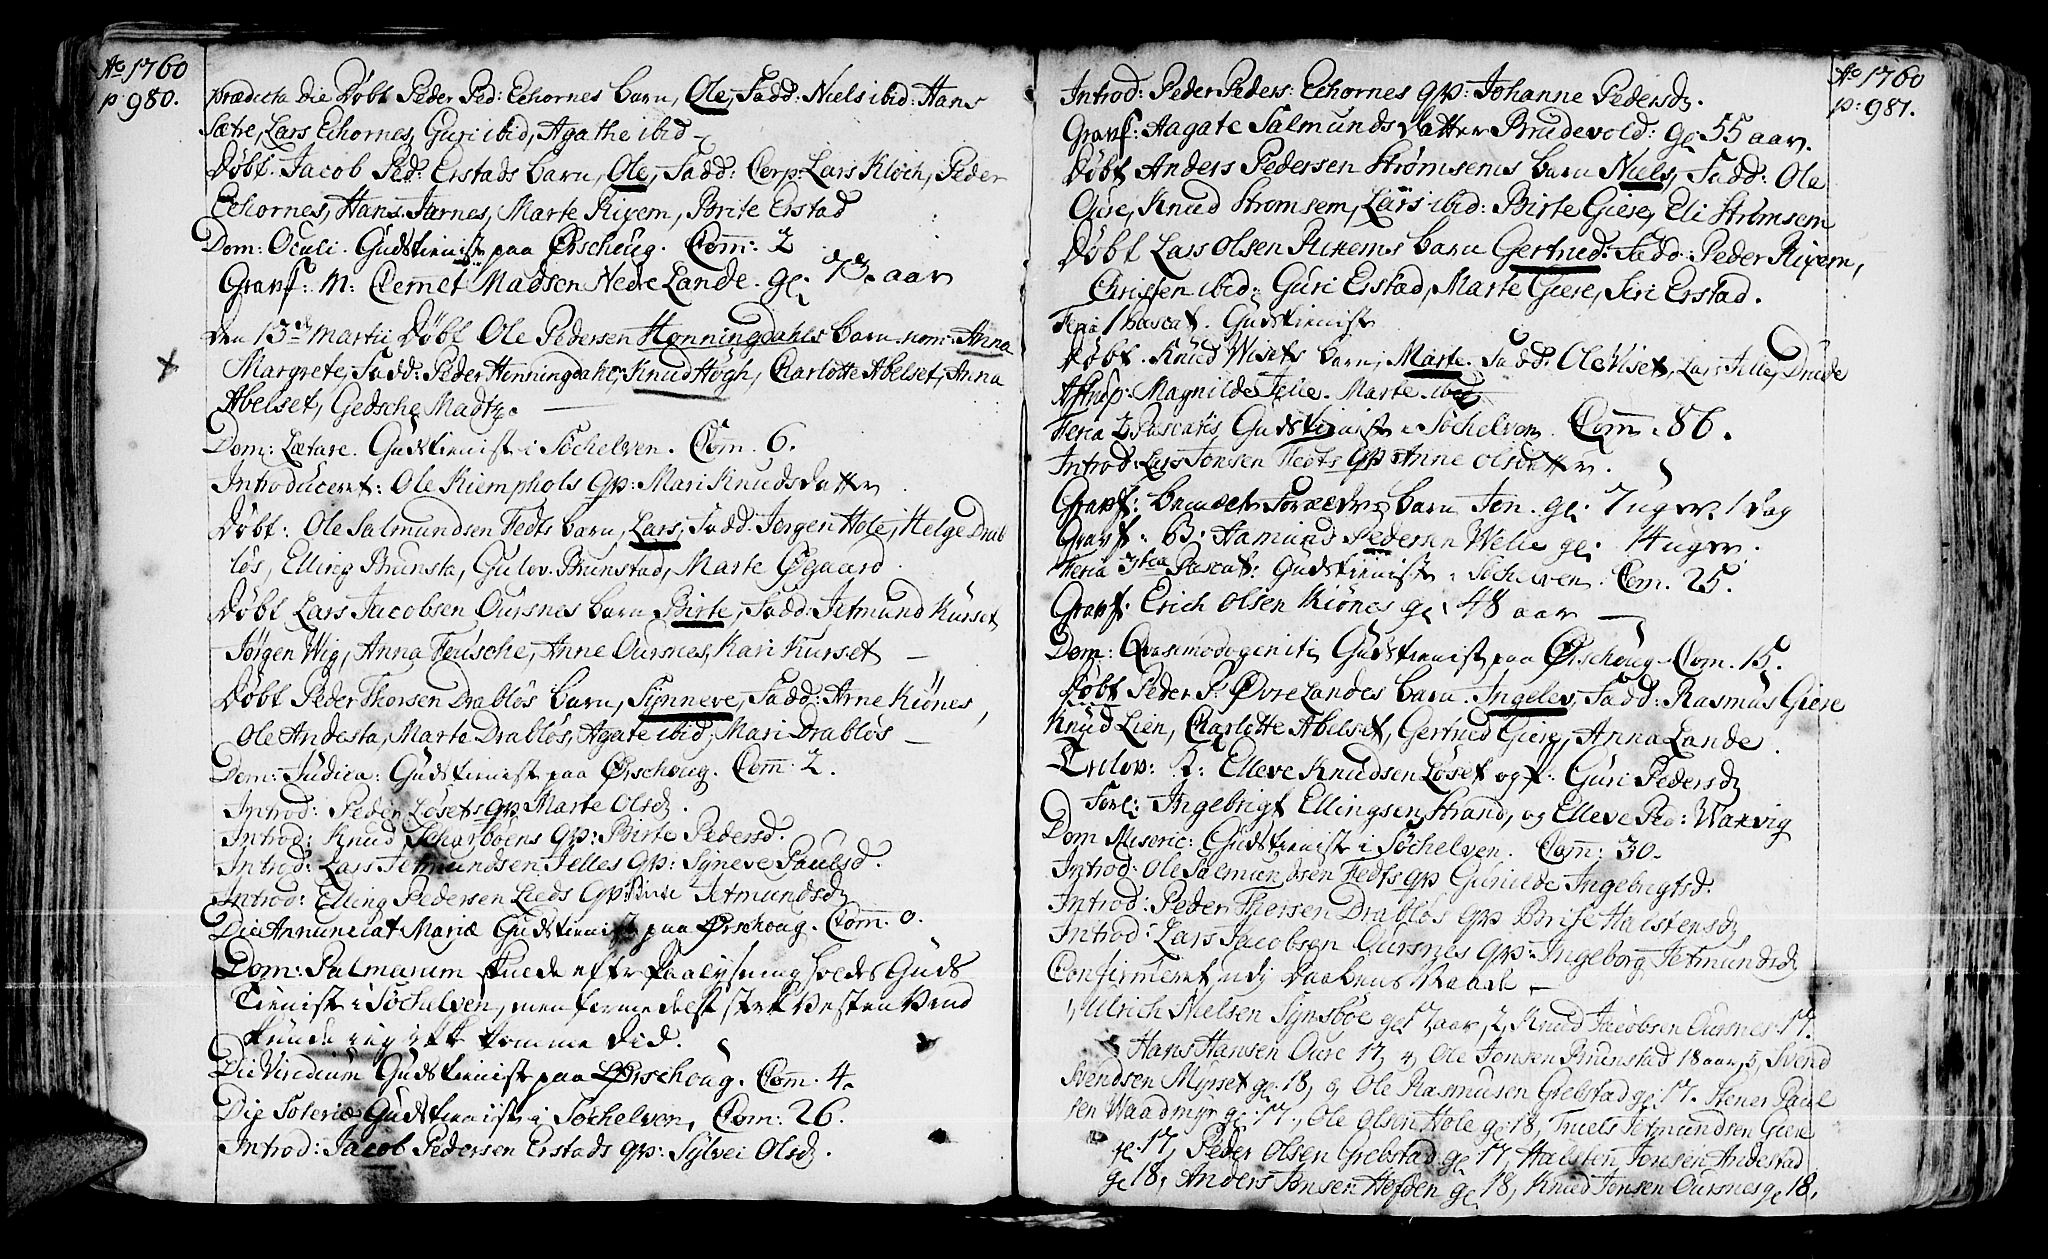 Ao 1760
p 980.
prædicta die Døbt Peder Ped: Echornes barn, Ole, Fadd: Niels ibid: Hans
Sætre, Lars Echornes, Guri ibid, Agathe ibid
Døbt. Jacob Ped: Erstads barn, Ole, Fadd: Corp: Lars Kloch, Peder
Echornes, Hans Jarnes, Marte Rixem, Brite Erstad
Dom: Oculi. Gudstienist paa Ørschoug. Com: 2
Gravf: M: Clemet Madsen Nedre Lande. gl. 73. aar
Den 13de Martii Døbt Ole Pedersen Honningdahls barn nom: Anna
Margrete, Fadd: Peder Honningdahl, Knud Høgh, Charlotte Abelset, Anna
Abelset, Gedsche Madtz.
Dom: Lætare. Gudstienist i Søchelven. Com. 6.
Introduceret: Ole Kiemphols qv: Mari Knudsdatter
Døbt: Ole Salmundsen Fedts barn, Lars, Fadd: Jørgen Hole, Helge Drab
løs, Elling Brunsta, Gulov Brunstad, Marte Øgaard.
Døbt Lars Jacobsen Oursnes barn Birte, Fadd: Jetmund Kurset
Jørgen Wig, Anna Feusche, Anne Oursnes, Kari Kurset
Døbt Peder Thorsen Drabløs barn, Synneve, Fadd: Arne Kiønes,
Ole Andesta, Marte Drabløs, Agate ibid, Mari Drabløs
Dom: Judica: Gudstienist paa Ørschoug. Com: 2.
Introd: Peder Løsets qv: Marte Olsd.
Introd: Knud Scharboens qv: Birte Pedersd.
Introd: Lars Jetmundsen Jelles qv: Syneve Paulsd.
Introd: Elling Pedersen Leeds qv: Birte Jetmundsd
Die Annunciat Mariæ Gudstienist paa Ørschoug. Com: 0.
Dom: Palmarum skulde efter Paalysning holdes Guds
tienist i Søchelven, men formedelst sterk Vesten Vind
kunde ieg ikke komme did.
Die Viridium Gudstienist paa Ørschoug. Com. 4.
Die Soteriæ Gudstienist i Søchelven, Com: 26.
Introd: Jacob Pedersen Erstads qv: Sylvei Olsd.
Ao 1760
p: 981.
Introd: Peder Peders: Echornes qv: Johanne Pedersd.
Gravf: Aagate Salmunds datter Brudevold: gl 55 aar.
Døbt Anders Pedersen Strømsems barn Niels, Fadd: Ole
Oure, Knud Strømsem, Lars ibid: Birte Giere, Eli Strømsem
Døbt Lars Olsen Rixems barn Gertrud. Fadd: Peder Rixem,
Christen ibid: Guri Erstad, Marte Giere, Siri Erstad.
Feria 1 Pascat. Gudstienist
Døbt. Knud Wisets barn, Marte. Fadd: Ole Viset, Lars Jelle, Drude
Astrup: Magnilde Jelle. Marte ibid
Feria 2 Pascatis Gudstienist i Søchelven. Com. 86.
Introd: Lars Jonsen Fedts qv: Anne Olsdatter.
Gravf: barn Jon. gl. 7 uger. 1 dag
Gravf. B: Hamund Pedersen Welle gl. 14 uger.
Feria 3tia Pascat: Gudstienist i Søchelven. Com. 25.
Gravf. Erich Olsen Kiønes gl. 48 aar
Dom: Qvasimodogeniti Gudstienist paa Ørschoug Com. 15.
Døbt Peder P: Øvre Landes barn. Ingelev, Fadd: Rasmus Giere
Knud Lien, Charlotte Abelset, Gertrud Giere, Anna Lande.
Trolov: Elleve Knudsen Løset og Guri Pedersd
Forl: Ingebrigt Ellingsen Strand, og Elleve Ped: Waxvig
Dom Miseric: Gudstienist i Søchelven. Com: 30.
Introd: Ole Salmundsen Fedts qv Gurilde Ingebrigtsd.
Introd: Peder Thorsen Drabløs qv Brite Halstensd
Introd: Lars Jacobsen Oursnes qv: Ingeborg Jetmundsd
Confirmeret udj Daabens Naade
1, Ulrich Nielsen Synsbøe gl 17 aar, 2, Knud Jacobsen Oursnes 17.
Hans Hansen Oure 17, 4, Ole Jonsen Brunstad 18 aar, 5, Svend
Svendsen Myrset gl. 18, 6 Ole Rasmusen Grebstad gl 17. Stener Paul
sen Waadmyr gl: 17, Ole Olsen Hole gl 18, Truels Jetmundsen Giere
gl 17, Peder Olsen Grebstad gl 17, Halsten Jonsen Andestad
gl 18, Anders Jonsen Hofden gl 18, Knud Jonsen Oursnes gl 18,